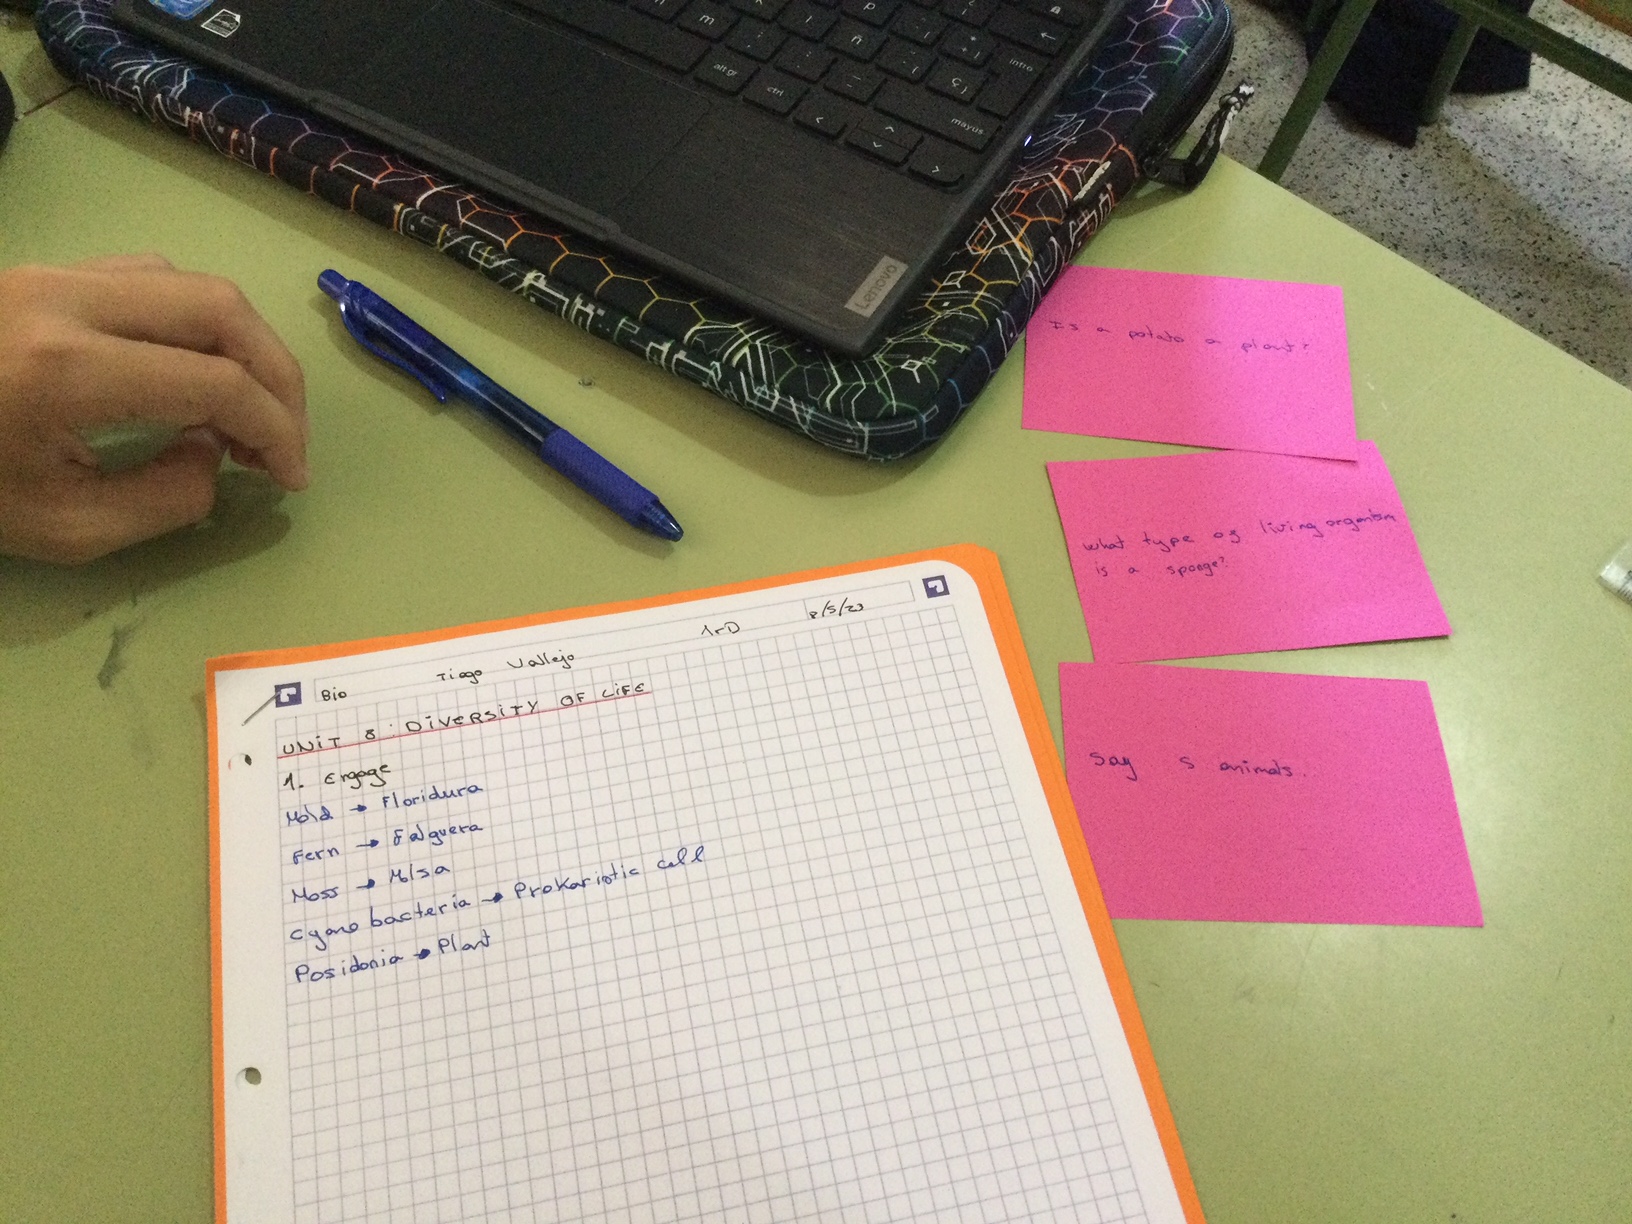 ñ
p
m
alt gr
ctrl
intro
mayus
Lenovo
Is a potato a plant?
what type of living organism
is a sponge?
Say 5 animals.
Bio Tiago Vallejo 1rD 8/5/23
UNiT 8: DiVERSiTY OF LiFE
1. Engage
Mold → Floridura
Fern → Falguera
Moss → Molsa
cyano bacteria → Prokariotic cell
Posidonia → Plant